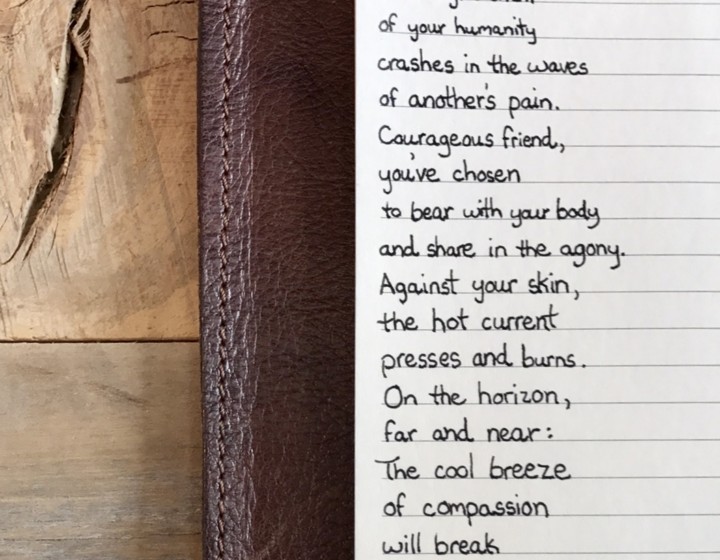 of your humanity
crashes in the waves
of another's pain.
Courageous friend,
you've chosen
to bear with your body
and share in the agony.
Against your skin,
the hot current
presses and burns.
On the horizon,
far and near:
The cool breeze
of compassion
will break